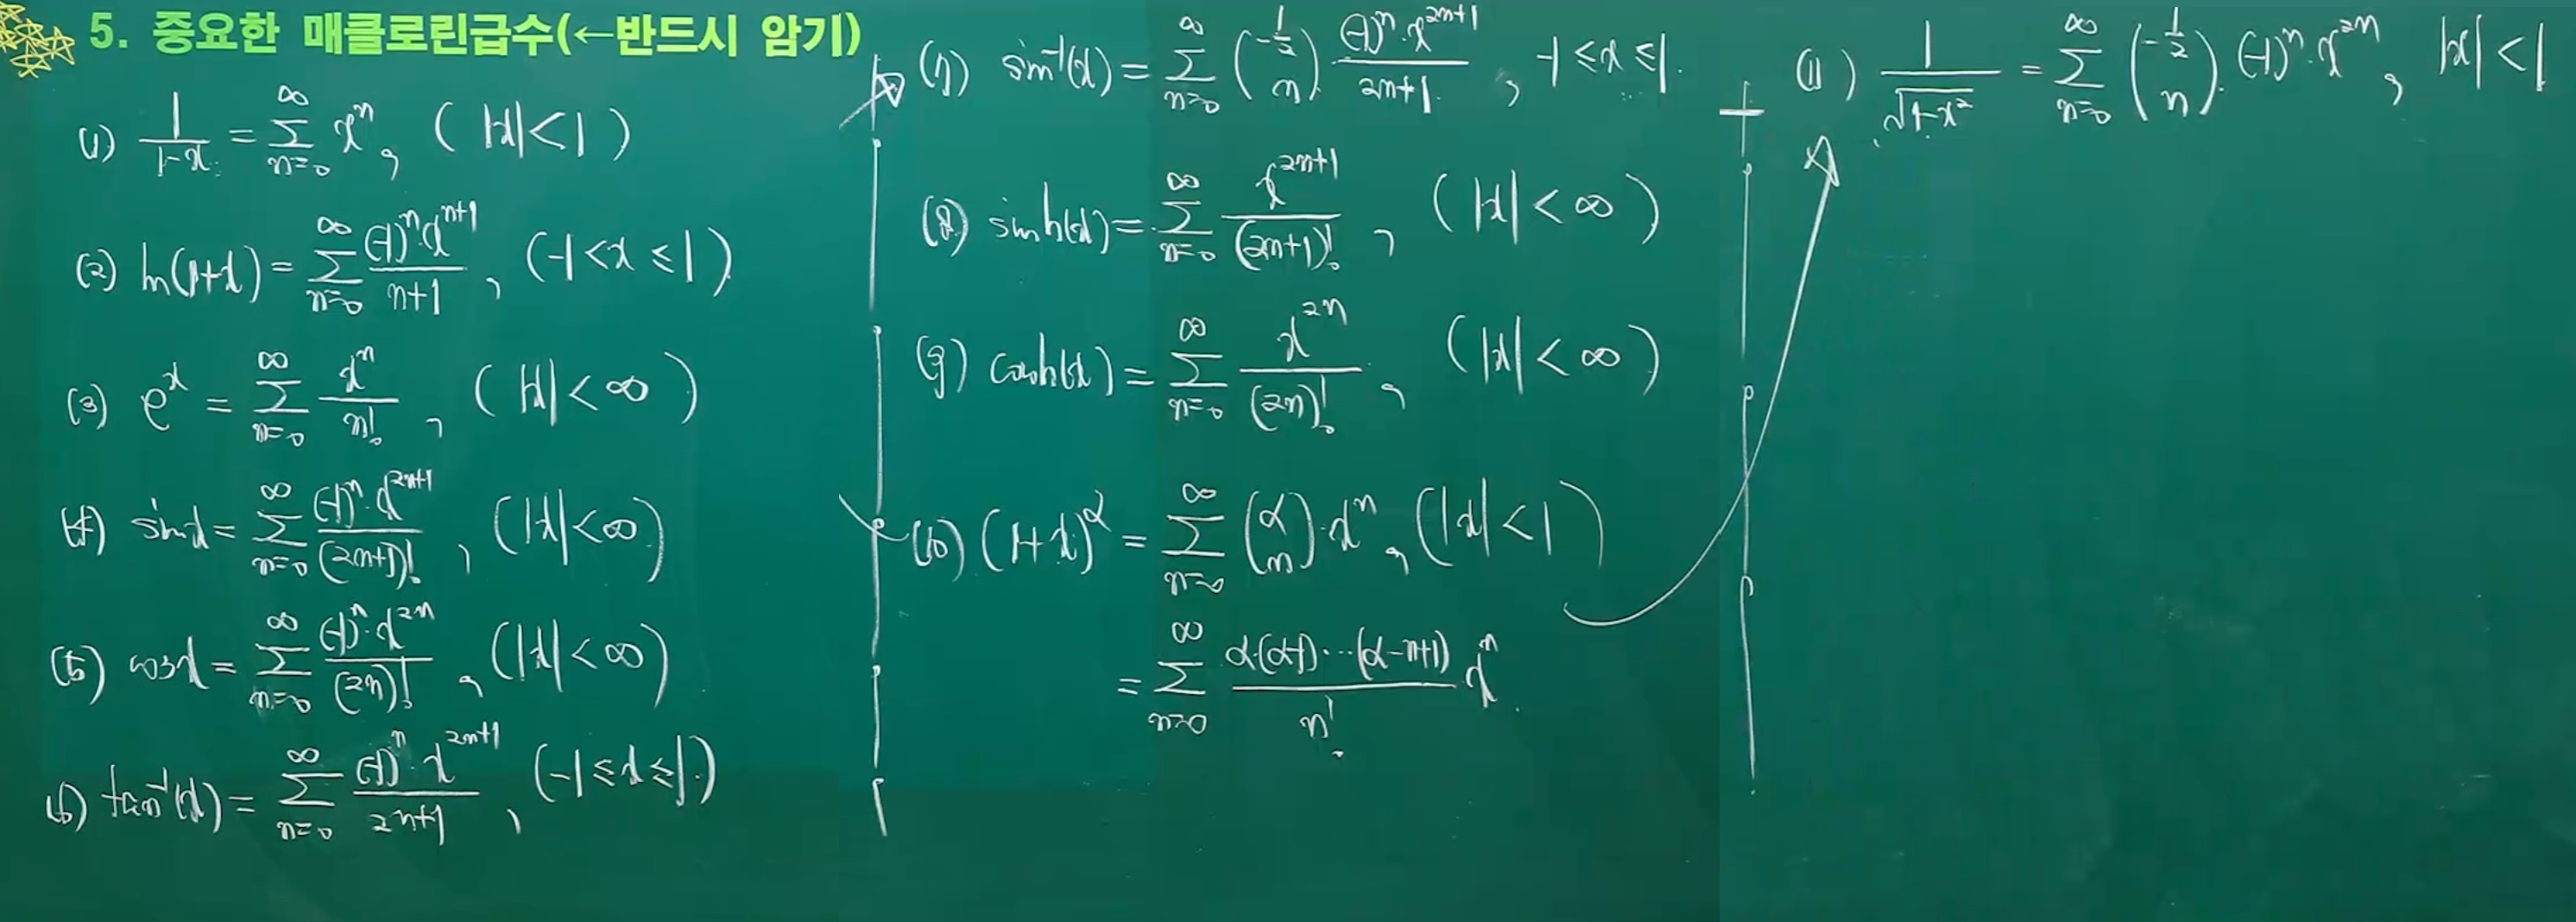 5. 중요한 매클로린급수(←반드시 암기)
(1) 1/(1-x) = ∑_{n=0}^{∞} x^n, (|x|<1)
(2) ln(1+x) = ∑_{n=0}^{∞} (-1)^n·x^{n+1}/(n+1), (-1<x≤1)
(3) e^x = ∑_{n=0}^{∞} x^n/n!, (|x|<∞)
(4) sinx = ∑_{n=0}^{∞} (-1)^n·x^{2n+1}/(2n+1)!, (|x|<∞)
(5) cosx = ∑_{n=0}^{∞} (-1)^n·x^{2n}/(2n)!, (|x|<∞)
(6) tan^{-1}(x) = ∑_{n=0}^{∞} (-1)^n·x^{2n+1}/(2n+1), (-1≤x≤1)
(7) sin^{-1}(x) = ∑_{n=0}^{∞} (-1/2 n)·(-1)^n·x^{2n+1}/(2n+1), -1≤x≤1.
(8) sinh(x) = ∑_{n=0}^{∞} x^{2n+1}/(2n+1)!, (|x|<∞)
(9) cosh(x) = ∑_{n=0}^{∞} x^{2n}/(2n)!, (|x|<∞)
(10) (1+x)^α = ∑_{n=0}^{∞} (α n)·x^n, (|x|<1)
= ∑_{n=0}^{∞} α·(α-1)···(α-n+1)/n! x^n
(11) 1/√(1-x²) = ∑_{n=0}^{∞} (-1/2 n)·(-1)^n·x^{2n}, |x|<1